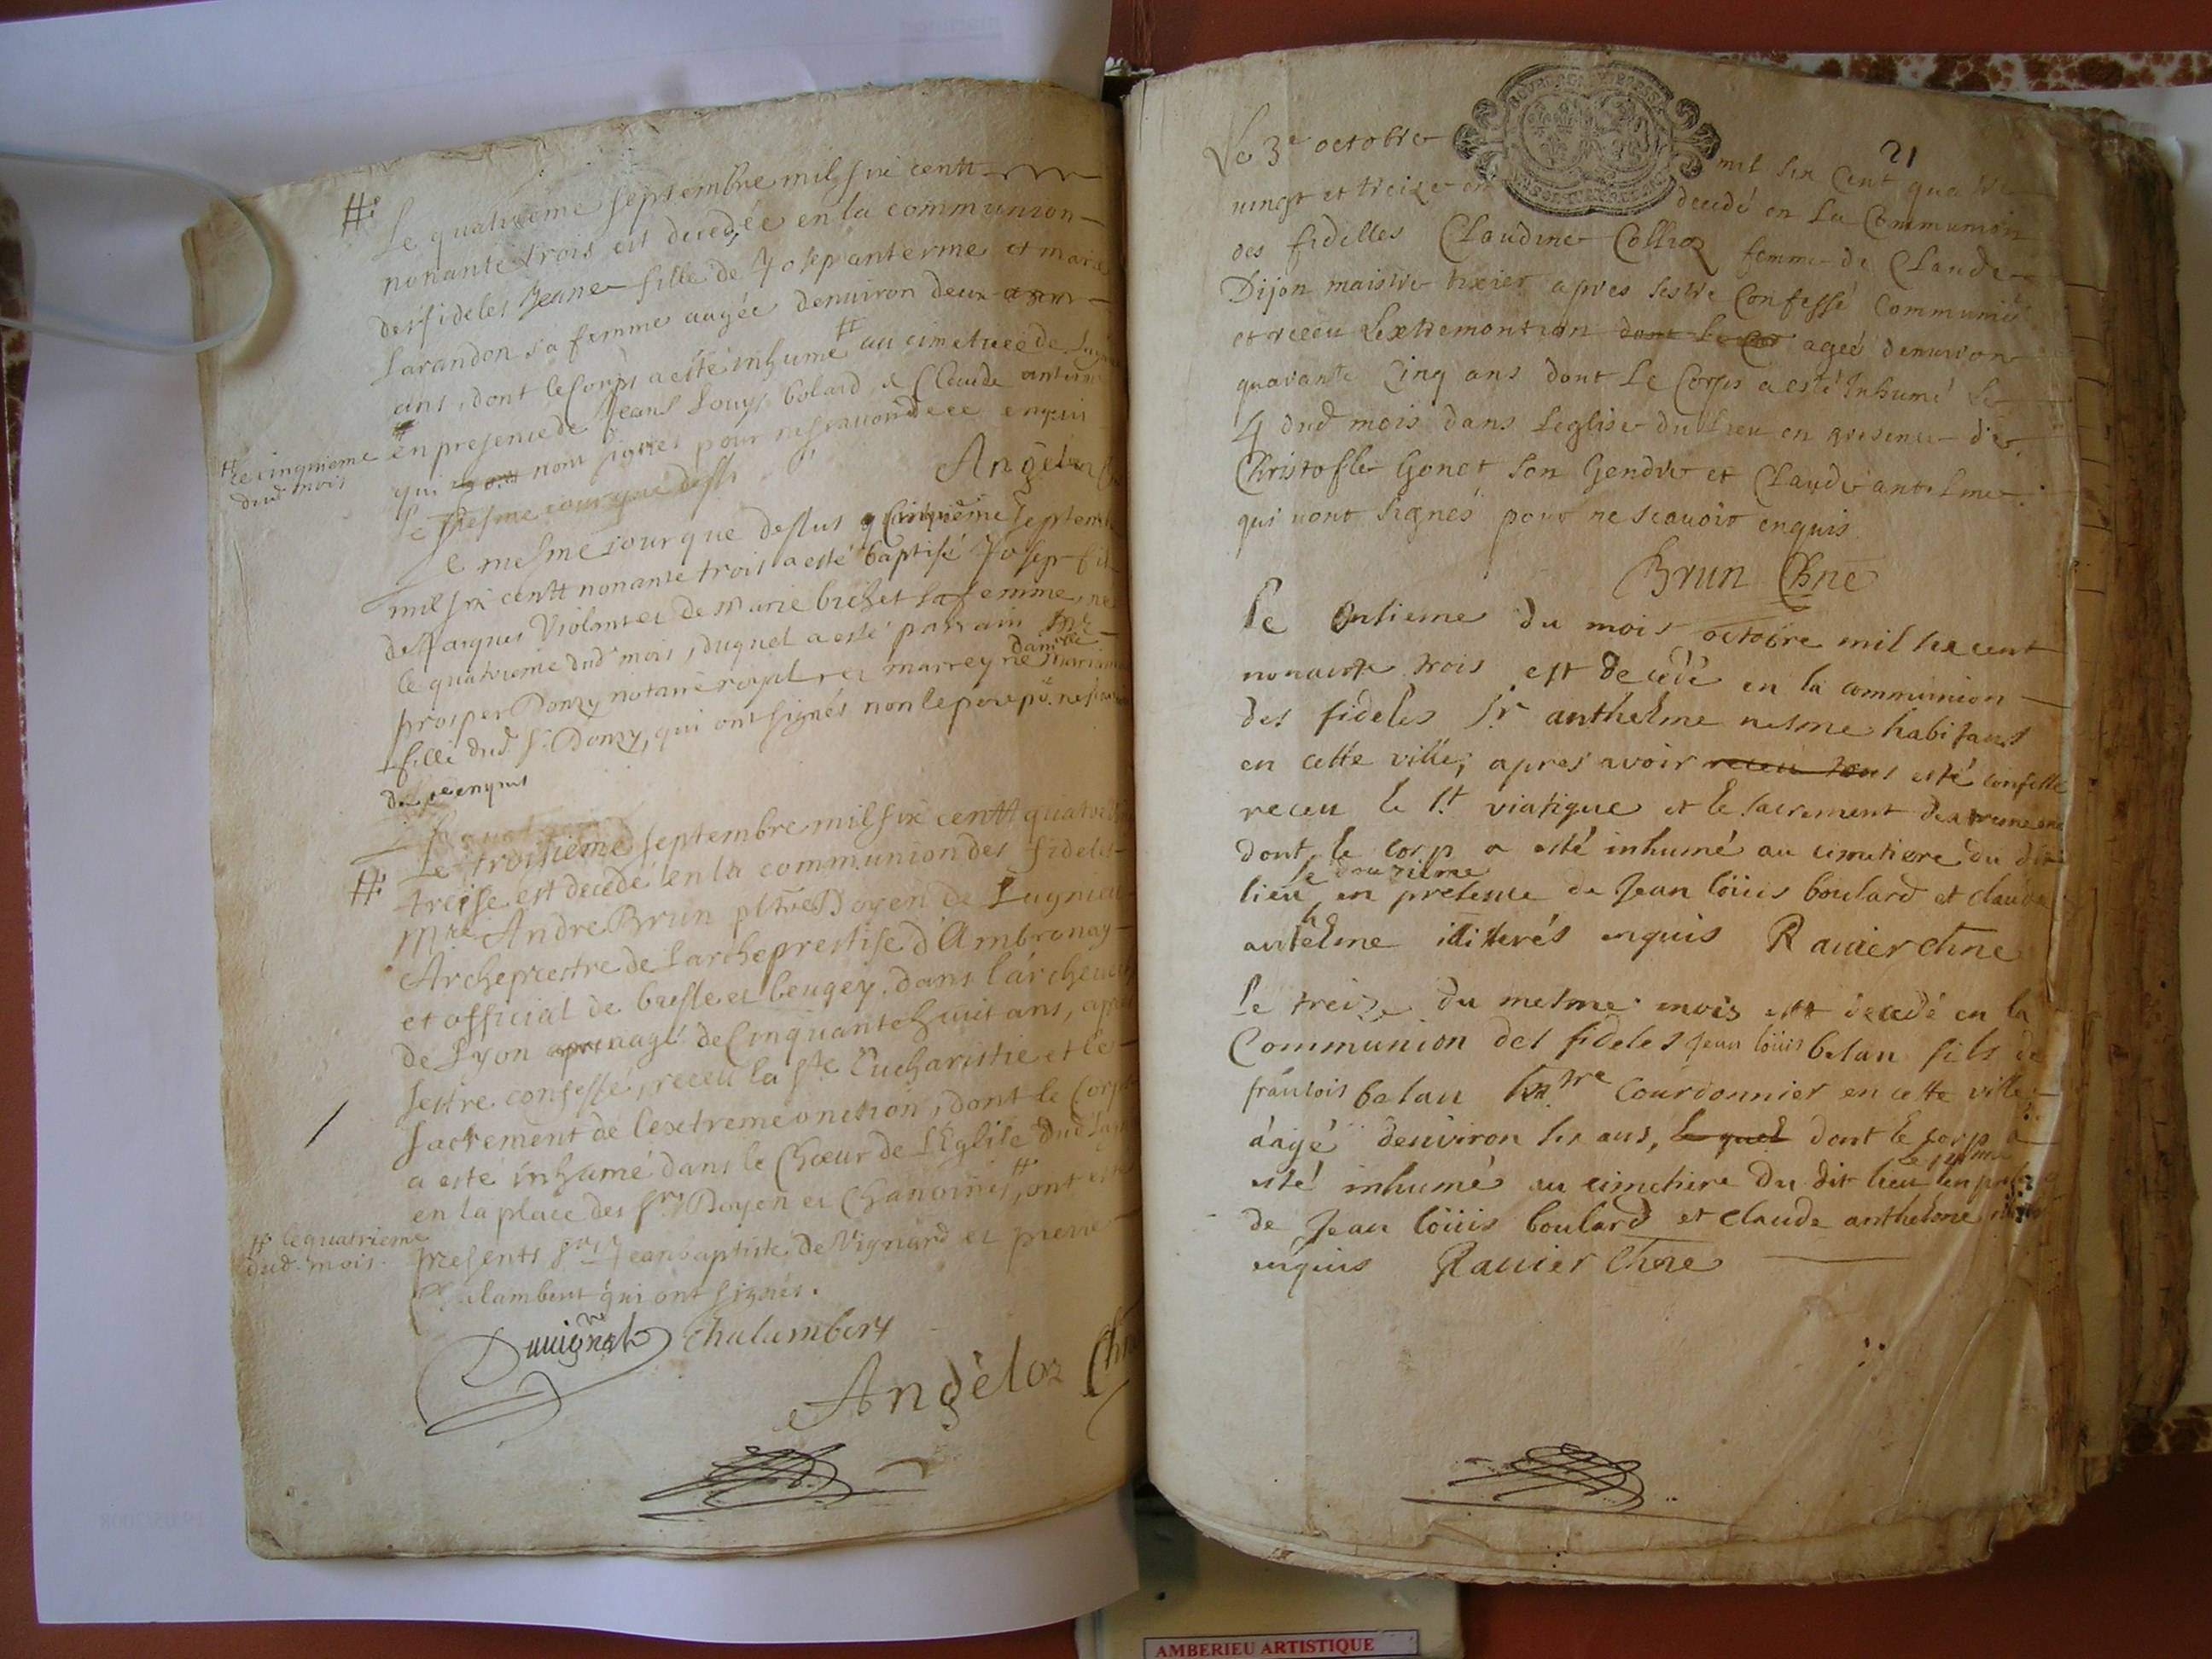 Le quatrieme septembre mil six centt
nonante trois est decedée en la communion
des fideles Jeane fille de Josep anterme et marie
Larandon sa femme aagée denuiron deux
ans, dont le corps a esté inhumé # au cimetiere de
# le cinquieme
dud mois
en presence de Jeans Louys bolard & Claude
qui nont signes pour
Angeloz
Le mesme jour que dessus Cinquieme septembre
mil six centt nonante trois a esté baptisé Josep
de Jaques Violant et de Marie bichet sa femme, né
le quatrieme dud mois, duquel a esté parrain
prosper Donzy notaire royal et marreyne
damlle
fille dud Sr Donzy, qui ont signés non le pere pr
de ce enquis
Le troisieme septembre mil six centt quatre
treise est decedé en la communion des fideles
Mre Andre Brun pbre Doyen de Lagnieu
Archeprestre de Larcheprestise d'Ambronay
et official de bresse et beugey dans l'archeue
de Lyon aagé de Cinquante huit ans, apres
sestre confessé, receu la Ste Eucharistie et le
sacrement de lextreme onction, dont le Corps
a esté inhumé dans le Chœur de L'Eglise dud
en la place des Srs Doyen et Chanoines #, ont esté
# le quatrieme
dud mois
presents Srs Jean baptiste de Vignard et pierre
Chalambert qui ont signés.
Chalambert
Angeloz Chne
21
Le 3e octobre mil six Cent quatre
uingt et treize est decedé en La Communion
des fidelles Claudine Collioz femme de Claude
Dijon maistre tixier apres sestre Confessé Communié
et receu Lextremontion dont le cor ageé denuiron
quarante Cinq ans dont Le Corps a esté Inhumé le
4 dud mois dans Leglise du lieu en presence de
Christofle Gonet son Gendre et Claude antelme
qui nont signés pour ne scauoir enquis
Brun Chne
Le Onsieme du mois octobre mil six cent
nonante trois est decedé en la communion
des fideles Sr anthelme nesme habitant
en cette ville, apres avoir receu tous esté confessé
receu le St viatique et le sacrement
dont le corp a esté inhumé au cimetiere du dit
le douzieme
lieu en presence de Jean loüis boulard et claude
anthelme illiterés enquis Rauier chne
Le treize du mesme mois est decedé en la
Communion des fideles Jean loüis belan fils de
fransois belan Mtre Courdonnier en cette ville
aagé denviron six ans, lequel dont le corp a
esté inhumé au cimetiere du dit lieu en
de Jean loüis boulard et claude anthelme
enquis Rauier Chne
AMBERIEU ARTISTIQUE